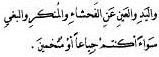 واليد والعين عن الفحشاء والمنكر والبغي
سواء أكنتم جياعا أو متخمين .